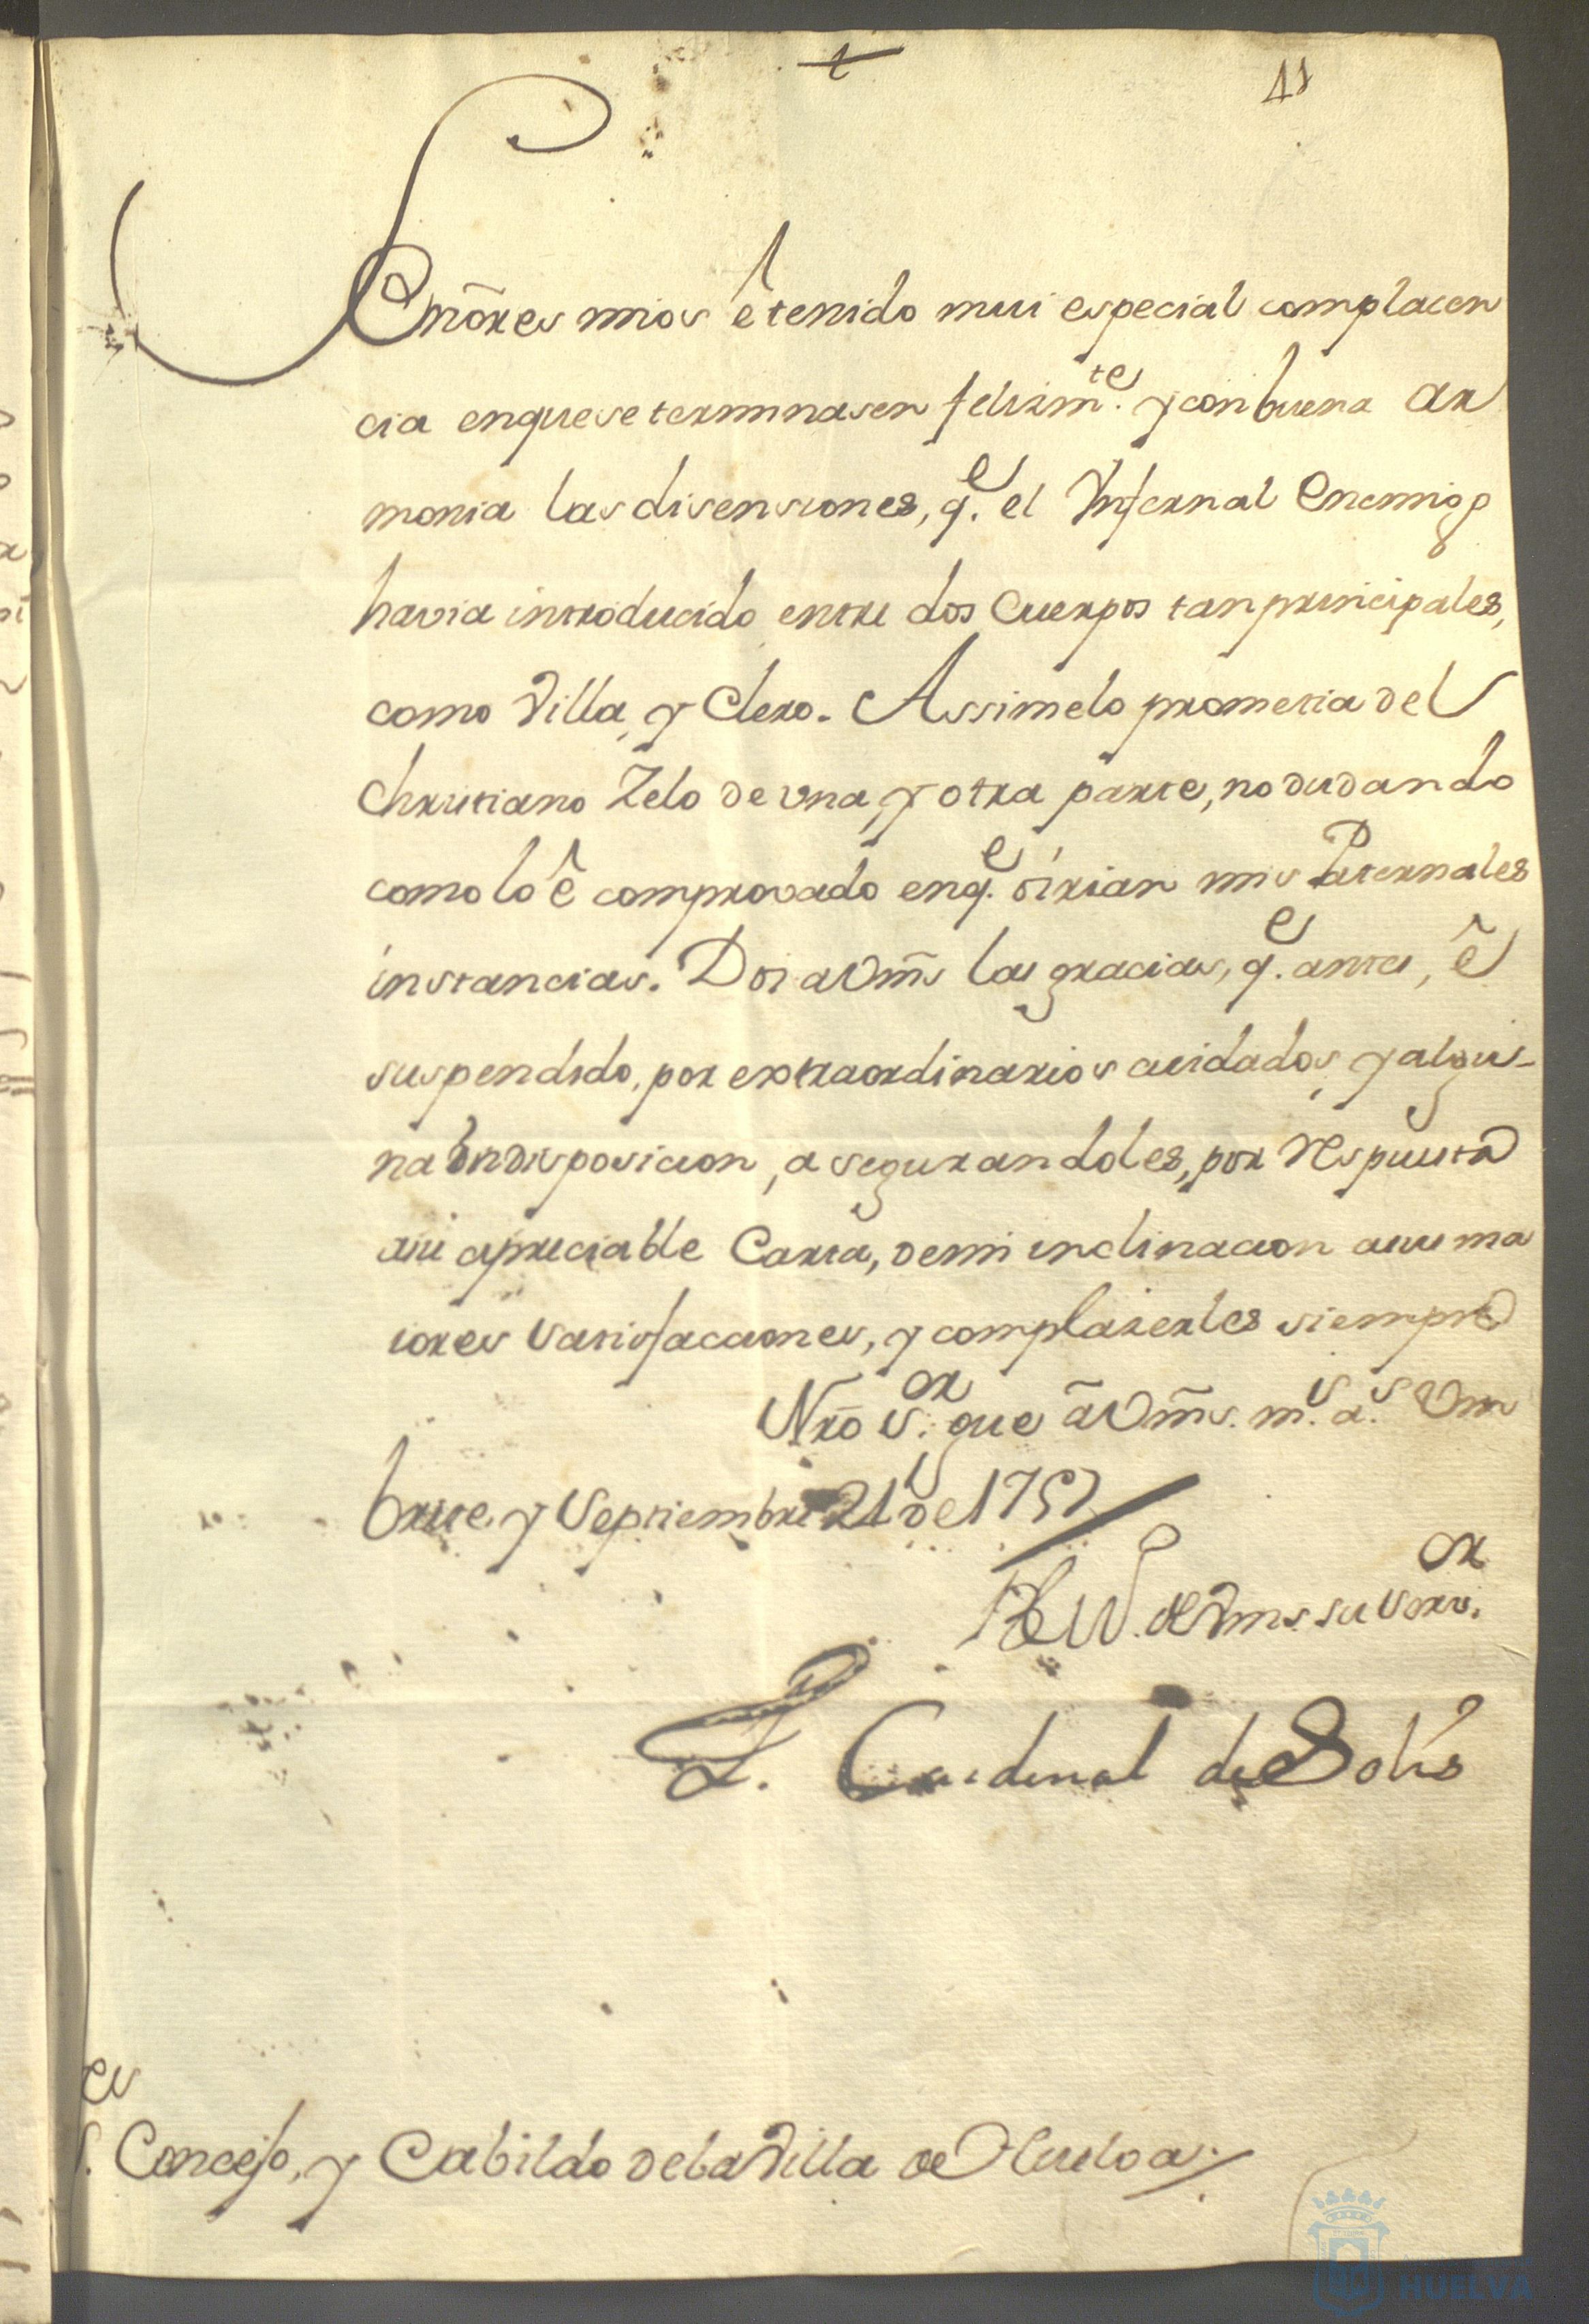 41
Señores mios ê tenido mui especial complacen
cia en que se terminasen felizm.te y con buena ar
monia las disensiones, q.e el Ynfernal Enemigo
havia introducido entre dos Cuerpos tan principales,
como Villa, y Clero. Assi me lo prometia del
Christiano Zelo de una, y otra parte, no dudando
como lo ê comprovado en q.e oirian mis Paternales
instancias. Doi a Vm̃s las gracias, q.e antes, ê
suspendido, por extraordinarios cuidados, y algu-
na Indisposicion, asegurandoles, por respuesta
a su apreciable Carta, de mi inclinacion a sus ma
iores satisfacciones, y complazerles siempre
Nr̃o S.or gue ã Vm̃s. m.s a.s Um
brete, y Septiembre 21 de 1757
de Vms. su Serv.or
F. Cardenal de Solis
S.es Concejo, y Cabildo de la Villa de Huelva.
HUELVA